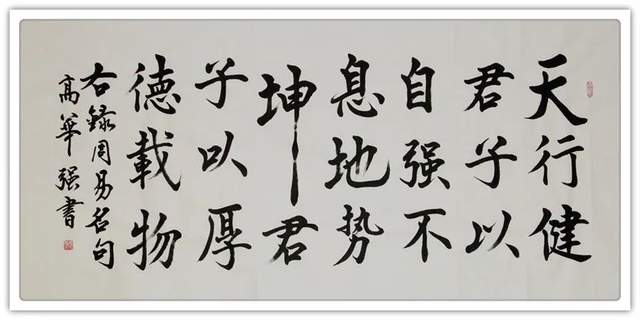 天行健
君子以
自强不
息地势
坤君
子以厚
德載物
右錄周易名句
高華强書